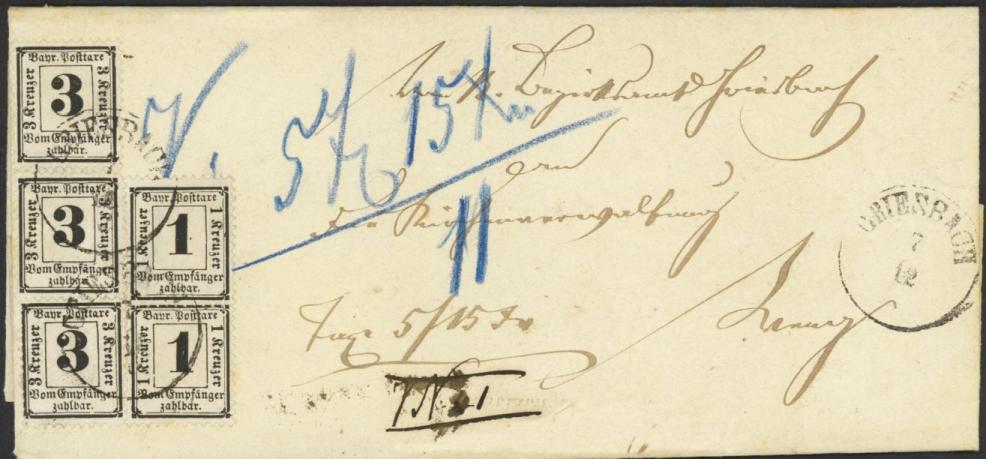 Bayr. Posttaxe
3 Kreuzer
3
3 Kreuzer
Vom Empfänger
zahlbar.
Bayr. Posttaxe
3 Kreuzer
3
3 Kreuzer
Vom Empfänger
zahlbar.
Bayr. Posttaxe
1 Kreuzer
1
1 Kreuzer
Vom Empfänger
zahlbar.
Bayr. Posttaxe
3 Kreuzer
3
3 Kreuzer
Vom Empfänger
zahlbar.
Bayr. Posttaxe
1 Kreuzer
1
1 Kreuzer
Vom Empfänger
zahlbar.
GRIESBACH
5 15
11
Bezirksamt Griesbach
der Kirchenverwaltung
Weng
Taxe 5/15
GRIESBACH
7
12